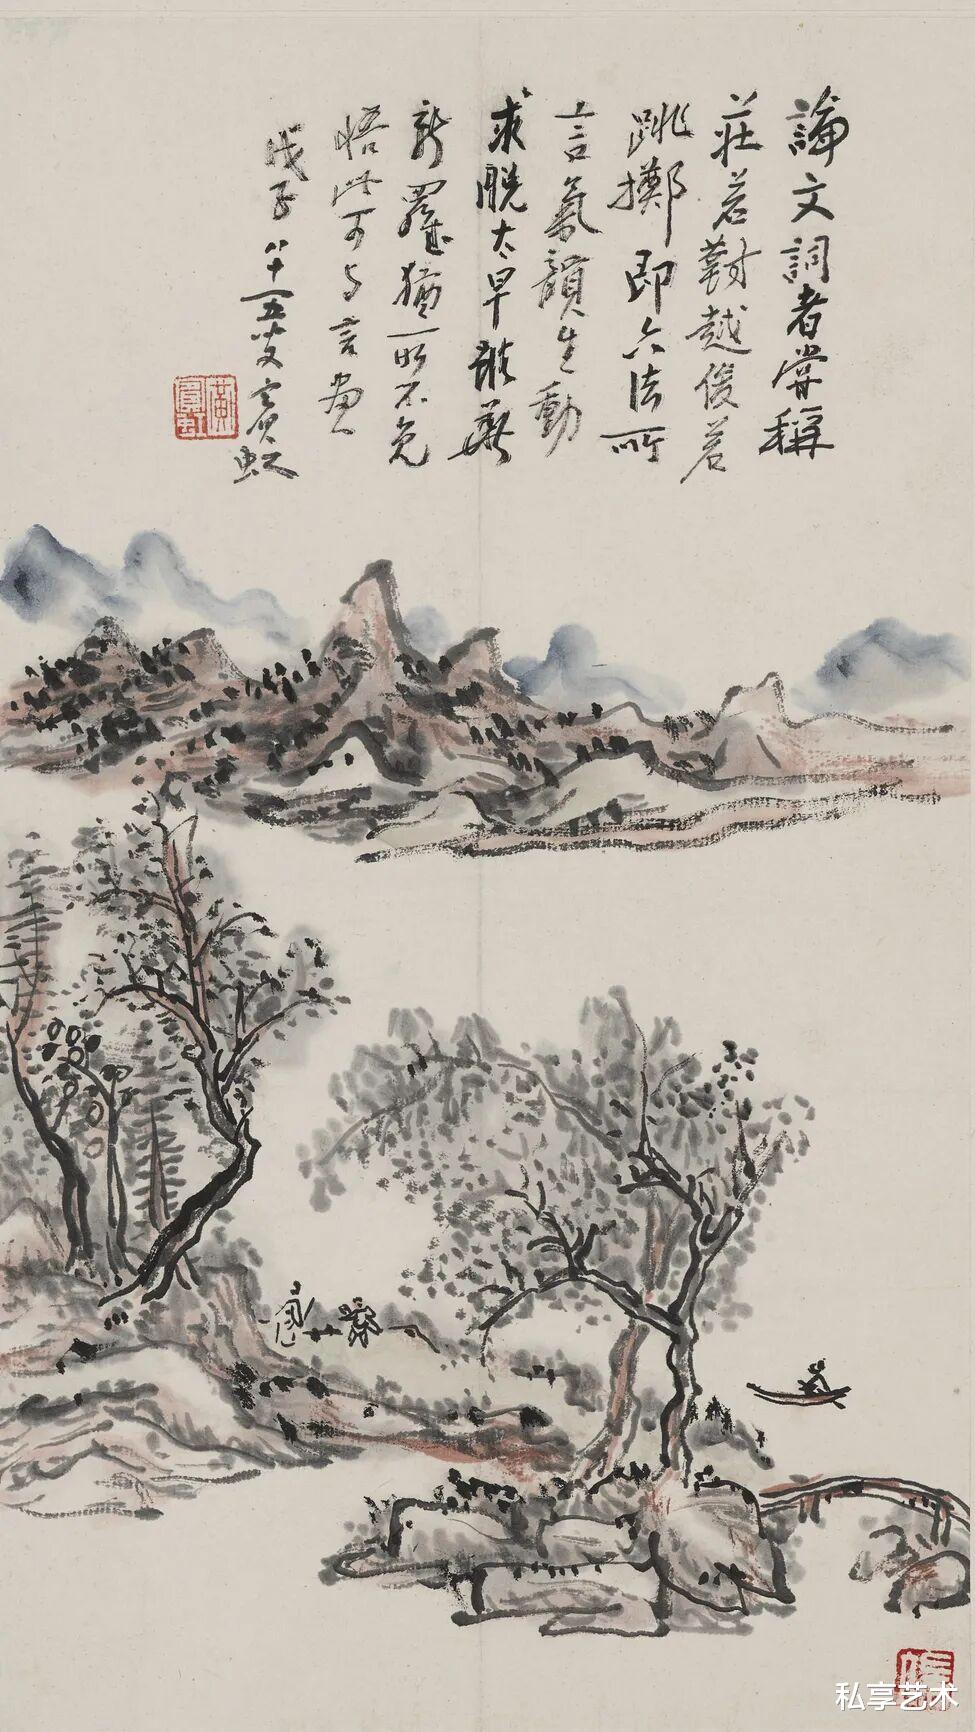 論文詞者嘗稱
莊若對越俊若
跳擲即六法所
言氣韻生動
求脫太早雖華
新羅猶所不免
悟此可与言畫
戊子
八十五叟賓虹
黃賓虹
私享艺术